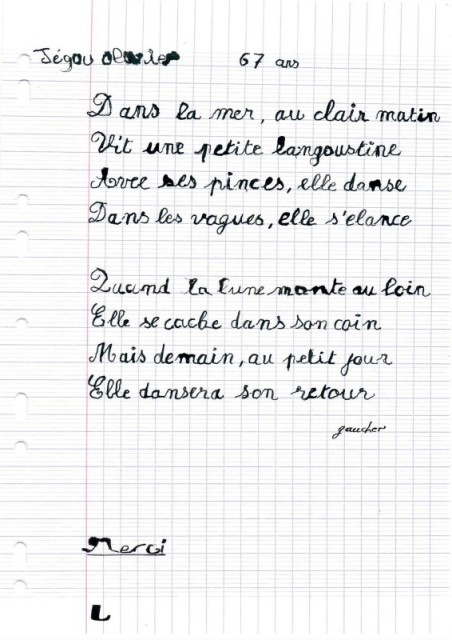 Jégou olivier 67 ans
Dans la mer, au clair matin
Vit une petite langoustine
Avec ses pinces, elle danse
Dans les vagues, elle s'elance
Quand la lune monte au loin
Elle se cache dans son coin
Mais demain, au petit jour
Elle dansera son retour
gaucher
Merci
L